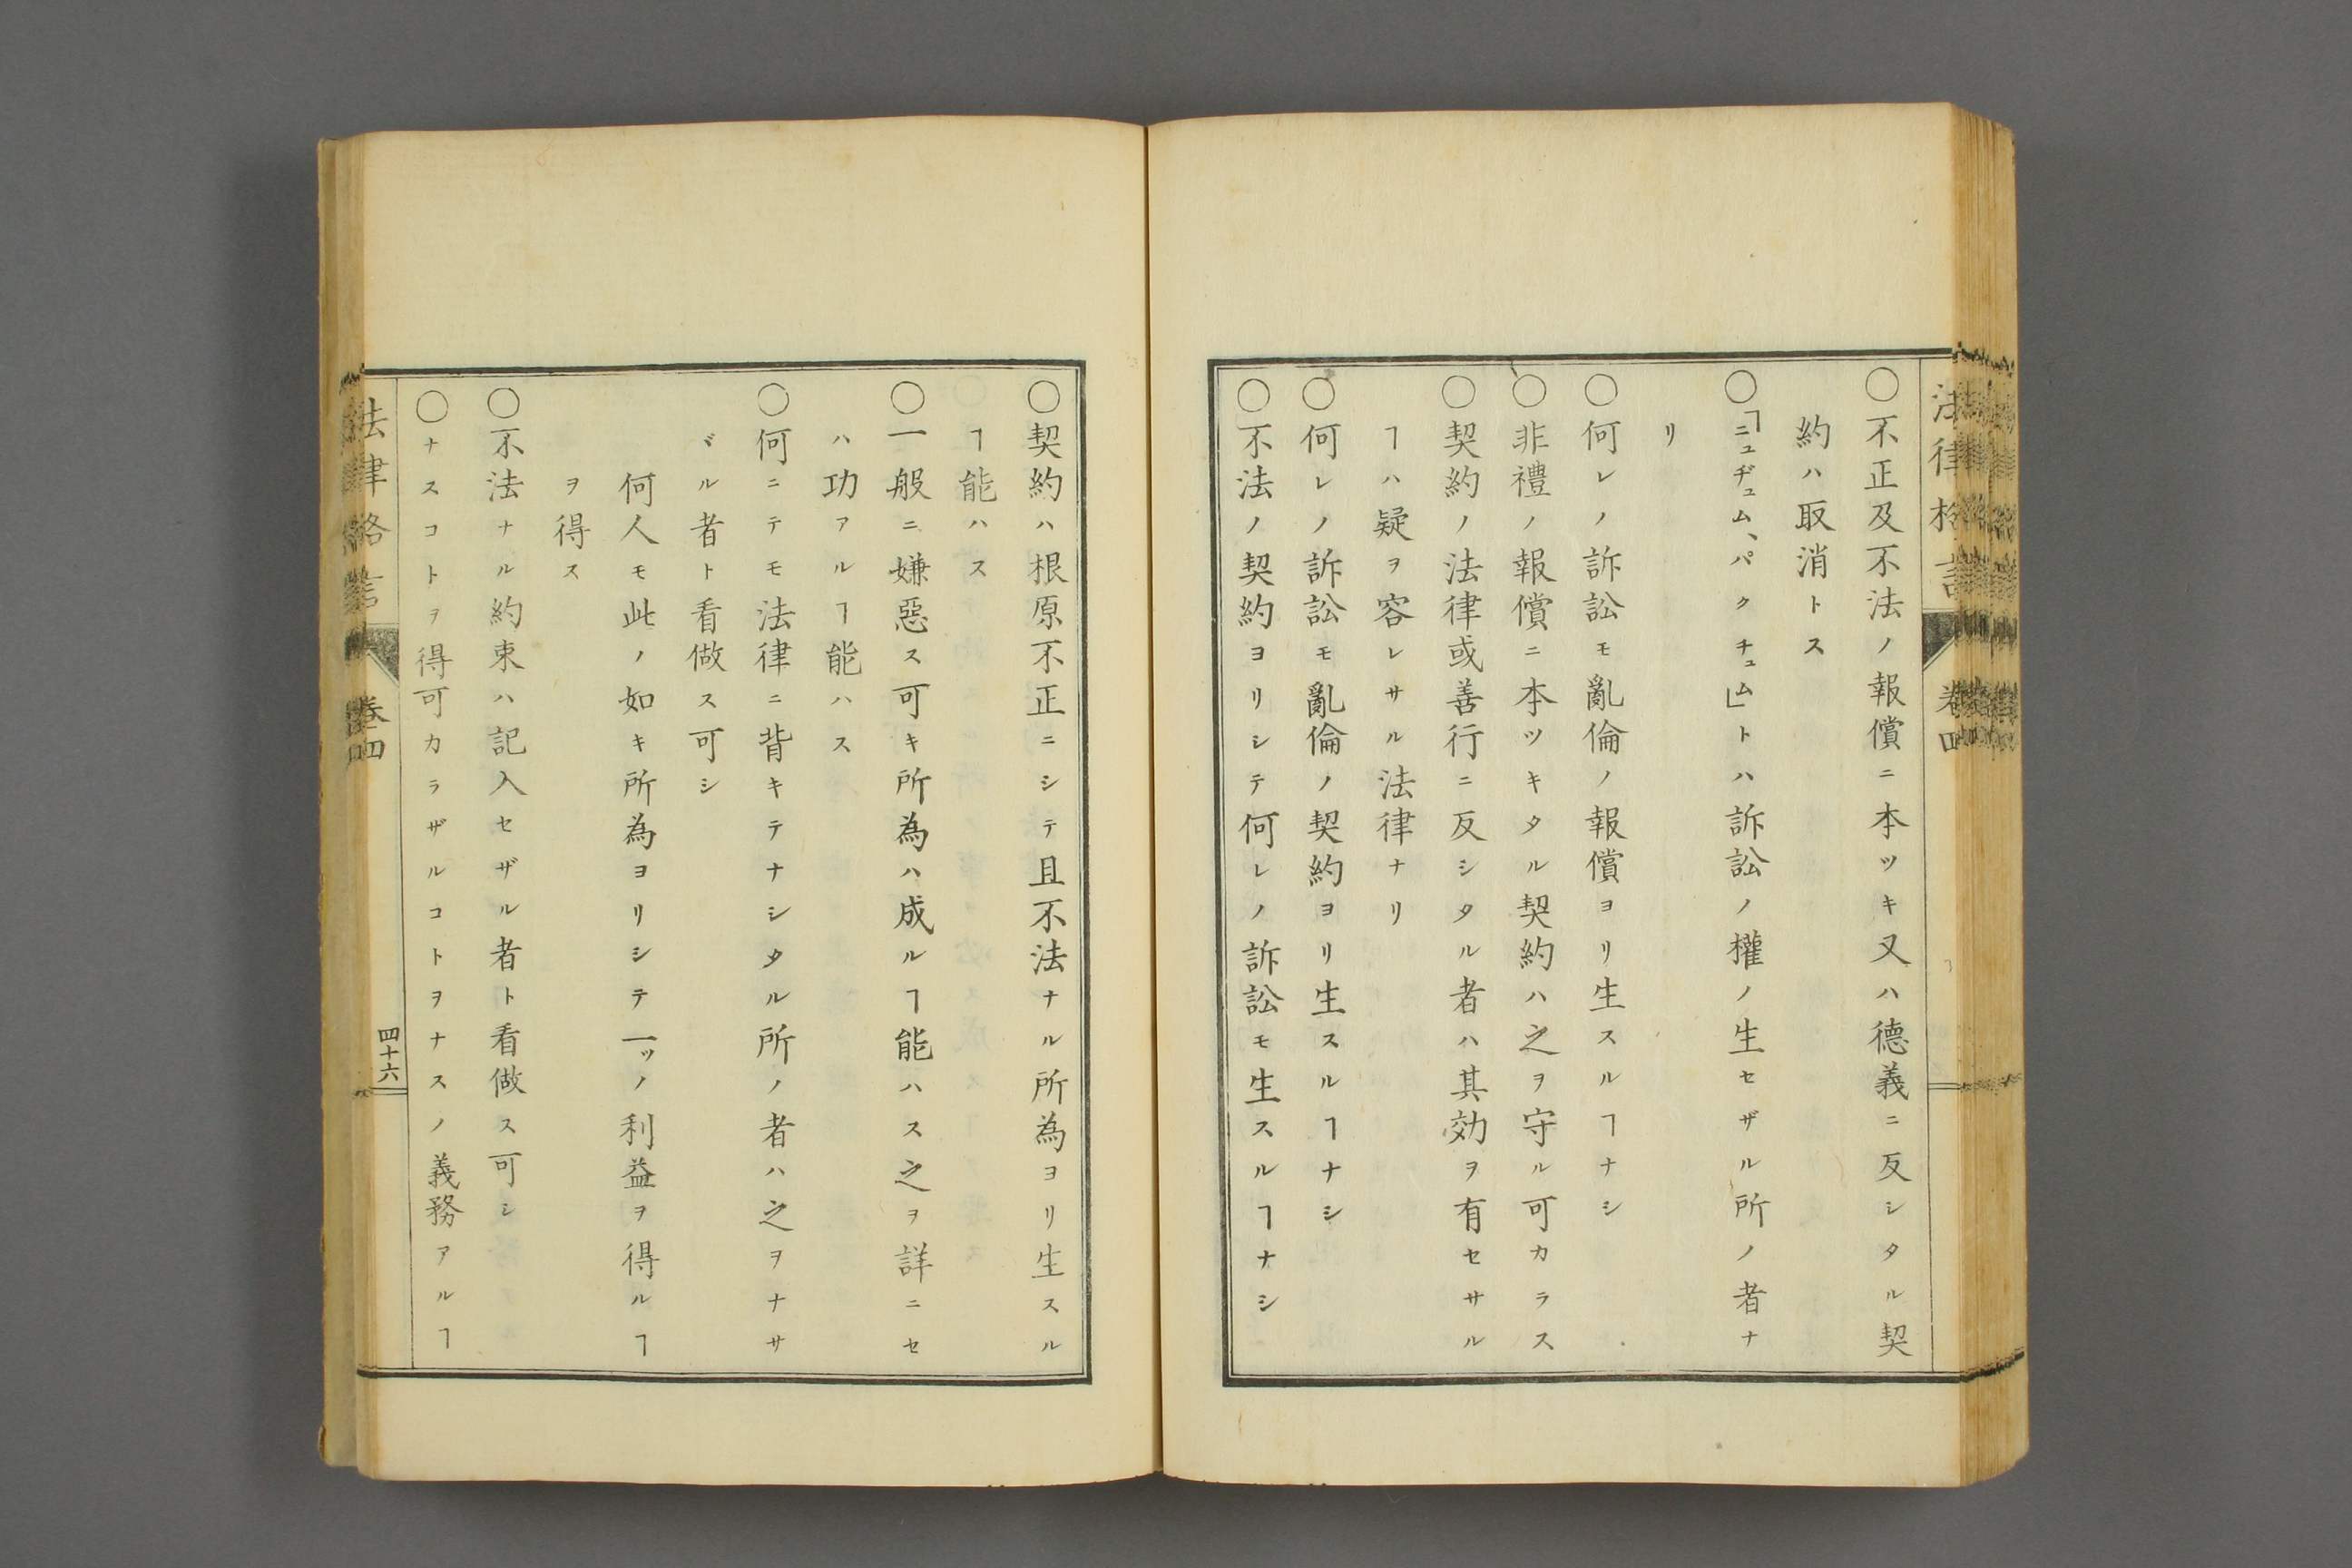 法律格言 卷四
○不正及不法ノ報償ニ本ツキ又ハ德義ニ反シタル契
約ハ取消トス
○「ニュヂュム、パクチュム」トハ訴訟ノ權ノ生セザル所ノ者ナ
リ
○何レノ訴訟モ亂倫ノ報償ヨリ生スルヿナシ
○非禮ノ報償ニ本ツキタル契約ハ之ヲ守ル可カラス
○契約ノ法律或善行ニ反シタル者ハ其効ヲ有セサル
ヿハ疑ヲ容レサル法律ナリ
○何レノ訴訟モ亂倫ノ契約ヨリ生スルヿナシ
○不法ノ契約ヨリシテ何レノ訴訟モ生スルヿナシ
○契約ハ根原不正ニシテ且不法ナル所為ヨリ生スル
ヿ能ハス
○一般ニ嫌惡ス可キ所為ハ成ルヿ能ハス之ヲ詳ニセ
ハ功アルヿ能ハス
○何ニテモ法律ニ背キテナシタル所ノ者ハ之ヲナサ
ヾル者ト看做ス可シ
何人モ此ノ如キ所為ヨリシテ一ッノ利益ヲ得ルヿ
ヲ得ス
○不法ナル約束ハ記入セザル者ト看做ス可シ
○ナスコトヲ得可カラザルコトヲナスノ義務アルヿ
法律格言 卷四 四十六